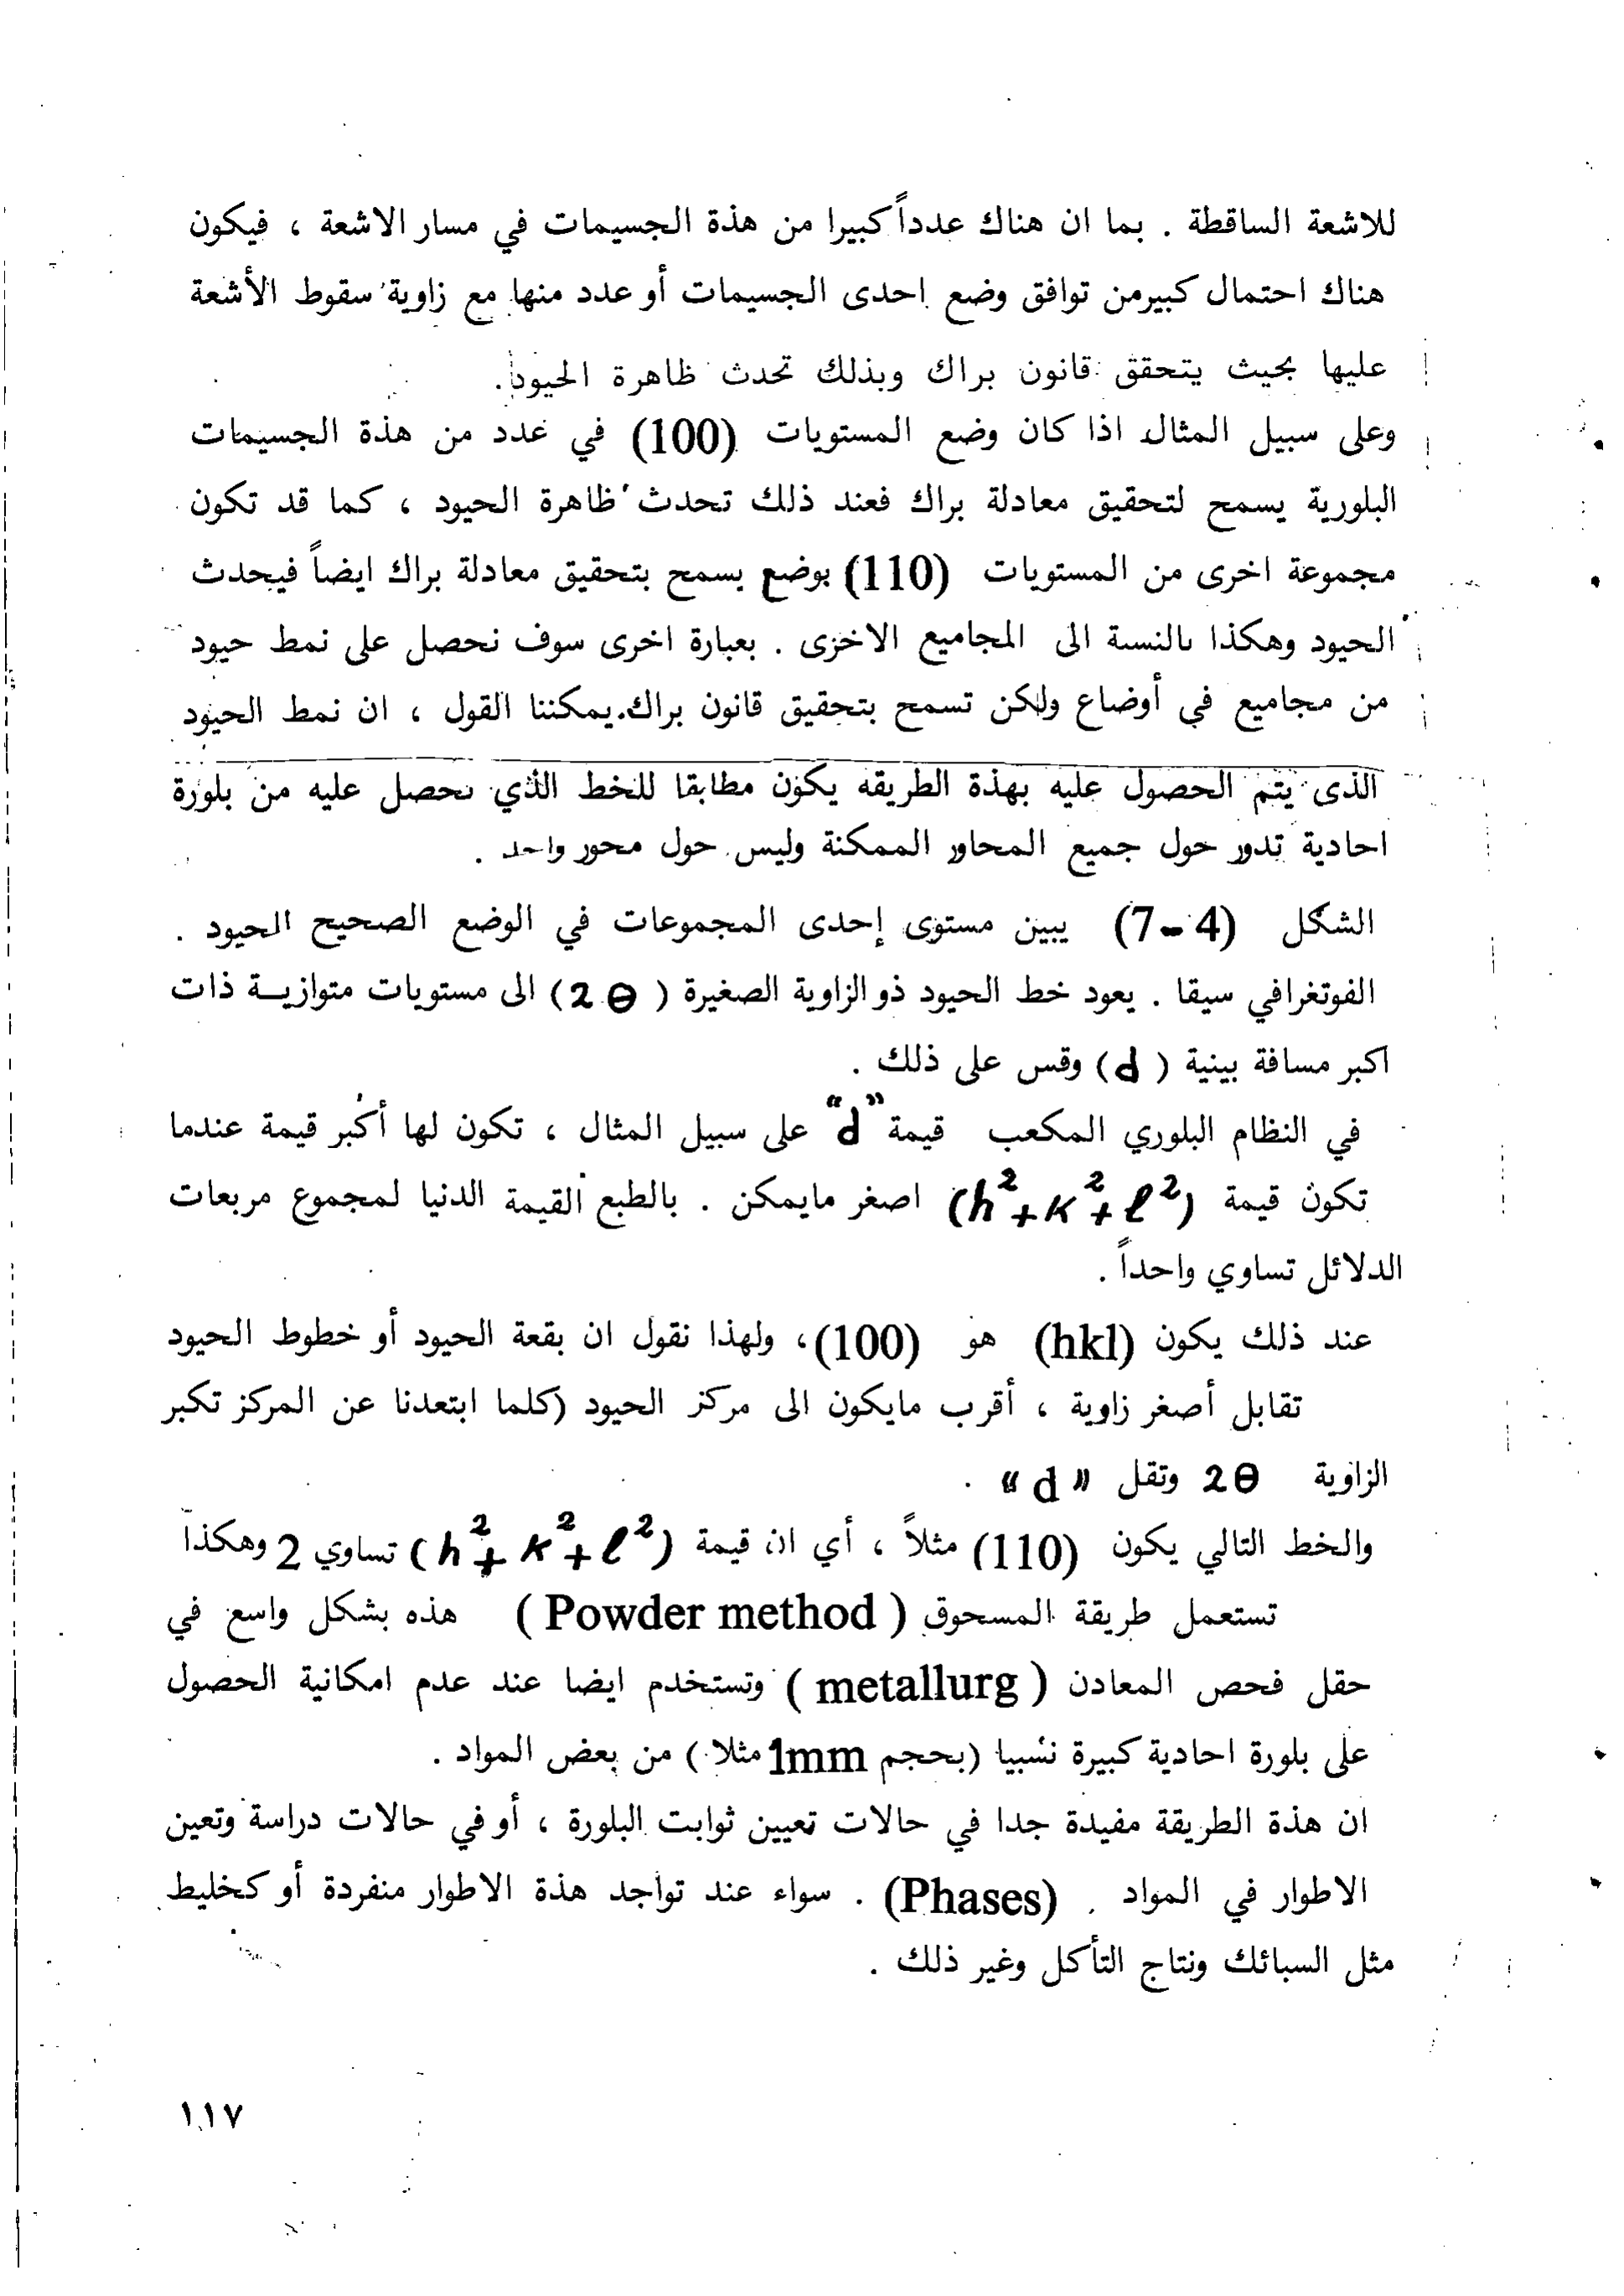 للاشعة الساقطة . بما ان هناك عدداً كبيرا من هذة الجسيمات في مسار الاشعة ، فيكون
هناك احتمال كبيرمن توافق وضع احدى الجسيمات أو عدد منها مع زاوية سقوط الأشعة
عليها بحيث يتحقق قانون براك وبذلك تحدث ظاهرة الحيود.
وعلى سبيل المثال اذا كان وضع المستويات (100) في عدد من هذة الجسيمات
البلورية يسمح لتحقيق معادلة براك فعند ذلك تحدث ظاهرة الحيود ، كما قد تكون
مجموعة اخرى من المستويات (110) بوضع يسمح بتحقيق معادلة براك ايضاً فيحدث
الحيود وهكذا بالنسبة الى المجاميع الاخرى . بعبارة اخرى سوف نحصل على نمط حيود
من مجاميع في أوضاع ولكن تسمح بتحقيق قانون براك.يمكننا القول ، ان نمط الحيود
الذى يتم الحصول عليه بهذة الطريقه يكون مطابقا للخط الذي نحصل عليه من بلورة
احادية تدور حول جميع المحاور الممكنة وليس حول محور واحد .
الشكل (4-7) يبين مستوى إحدى المجموعات في الوضع الصحيح الحيود .
الفوتغرافي سيقا . يعود خط الحيود ذو الزاوية الصغيرة (2θ) الى مستويات متوازية ذات
اكبر مسافة بينية (d) وقس على ذلك .
في النظام البلوري المكعب قيمة "d" على سبيل المثال ، تكون لها أكبر قيمة عندما
تكون قيمة (h²+K²+ℓ²) اصغر مايمكن . بالطبع القيمة الدنيا لمجموع مربعات
الدلائل تساوي واحداً .
عند ذلك يكون (hkl) هو (100)، ولهذا نقول ان بقعة الحيود أو خطوط الحيود
تقابل أصغر زاوية ، أقرب مايكون الى مركز الحيود (كلما ابتعدنا عن المركز تكبر
الزاوية 2θ وتقل «d» .
والخط التالي يكون (110) مثلاً ، أي ان قيمة (h²+K²+ℓ²) تساوي 2 وهكذا
تستعمل طريقة المسحوق (Powder method) هذه بشكل واسع في
حقل فحص المعادن (metallurg) وتستخدم ايضا عند عدم امكانية الحصول
على بلورة احادية كبيرة نسبيا (بحجم 1mm مثلا) من بعض المواد .
ان هذة الطريقة مفيدة جدا في حالات تعيين ثوابت البلورة ، أو في حالات دراسة وتعين
الاطوار في المواد . (Phases) . سواء عند تواجد هذة الاطوار منفردة أو كخليط
مثل السبائك ونتاج التأكل وغير ذلك .
١١٧